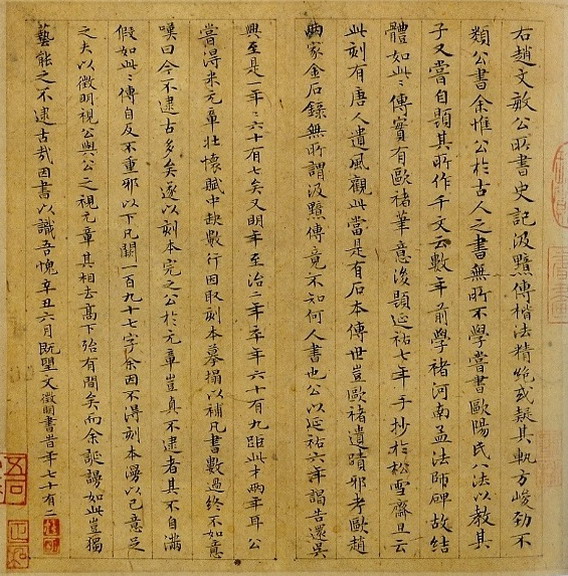 右趙文敏公所書史記汲黯傳楷法精絕或疑其軌方峻勁不
類公書余惟公於古人之書無所不學嘗書歐陽氏八法以教其
子又嘗自題其所作千文云數年前學褚河南孟法師碑故結
體如此〻傳實有歐褚筆意後題延祐七年手抄於松雪齋且云
此刻有唐人遺風觀此當是有石本傳世豈歐褚遺蹟邪考歐趙
兩家金石錄無所謂汲黯傳竟不知何人書也公以延祐六年謁告還吳
興至是一年〻六十有七矣又明年至治二年卒年六十有九距此才兩年耳公
嘗得米元章壯懷賦中缺數行因取刻本摹搨以補凡書數過終不如意
嘆曰今不逮古多矣遂以刻本完之公於元章豈真不逮者其不自滿
假如此〻傳自反不重邪以下凡闕一百九十七字余因不得刻本漫以己意足
之夫以徵明視公與公之視元章其相去高下殆有間矣而余誕謾如此豈獨
藝能之不逮古哉因書以識吾愧辛丑六月既望文徵明書旹年七十有二